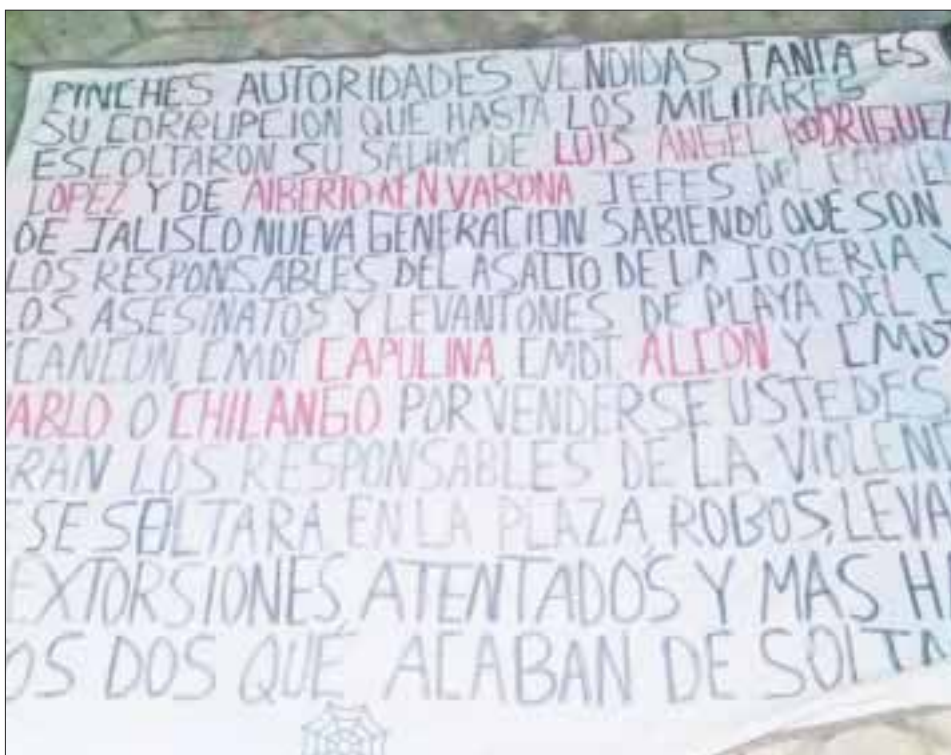 PINCHES AUTORIDADES VENDIDAS TANTA ES
SU CORRUPCION QUE HASTA LOS MILITARES
ESCOLTARON SU SALIDA DE LUIS ANGEL RODRIGUEZ
LOPEZ Y DE ALBERTO VARONA JEFES DEL CARTEL
DE JALISCO NUEVA GENERACION SABIENDO QUE SON
LOS RESPONSABLES DEL ASALTO DE LA JOYERIA Y
LOS ASESINATOS Y LEVANTONES DE PLAYA DEL
CANCUN, CMDT CAPULINA, CMDT. ALCON Y CMDT
ABLO O CHILANGO POR VENDERSE USTEDES
ERAN LOS RESPONSABLES DE LA VIOLEN
E SE SOLTARA EN LA PLAZA, ROBOS, LEVA
EXTORSIONES, ATENTADOS Y MAS H
OS DOS QUE ACABAN DE SOLTA